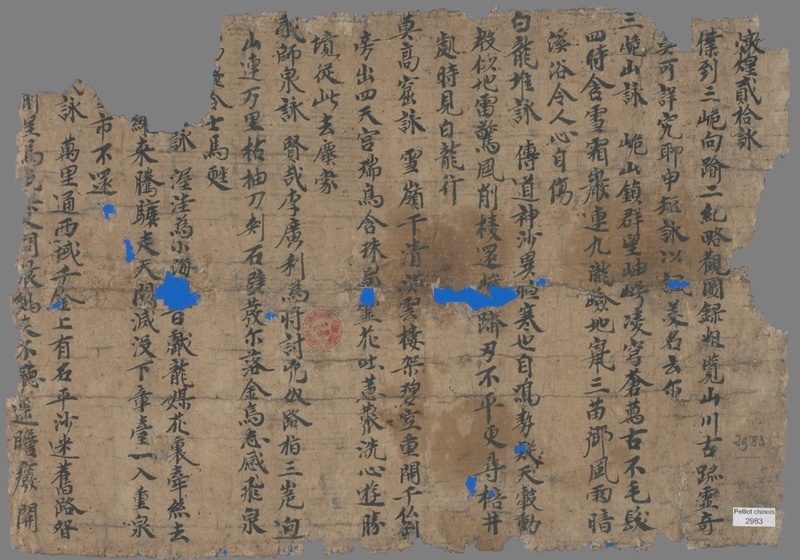 燉煌貳拾詠
僕到三危向踰二紀略觀圖録粗覽山川古跡靈奇
莫可詳究聊申短詠以諷美名云尔
三危山詠 危山鎮群望岫崿凌穹蒼萬古不毛髮
四時含雪霜巖連九隴險地竄三苗鄉風雨暗
溪谷令人心自傷
白龍堆詠 傳道神沙異暄寒也自鳴勢疑天鼓動
殷似地雷驚風削棱還峻躋刃不平更尋掊井
處時見白龍行
莫高窟詠 雪嶺干青漢雲樓架碧空重開千仏刹
旁出四天宮瑞鳥含珠影靈花吐蕙藂洗心遊勝
境從此去塵蒙
貳師泉詠 賢哉李廣利為將討兇奴路指三危迥
山連万里枯抽刀刺石壁發矢落金烏志感飛泉
能令士馬甦
詠 渥洼為小海 昔獻龍媒花裏牽絲去
練來騰驤走天闕滅没下章臺一入重泉
市不還
詠 萬里通西域千 上有名平沙迷舊路眢
前程馬色無人問晨鷄吏不聽遥瞻廢關
2983
Pelliot chinois
2983